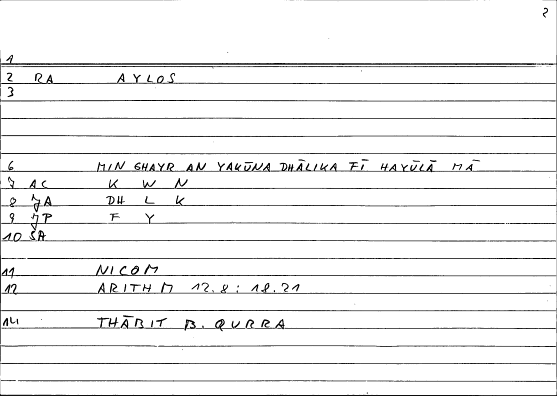 2
1
2 RA AYLOS
3
6 MIN GHAYR AN YAKŪNA DHĀLIKA FĪ HAYŪLĀ MĀ
7 AC K W N
8 JA DH L K
9 JP F Y
10 SA
11 NICOM
12 ARITHM 12.8 : 18.21
14 THĀBIT B. QURRA